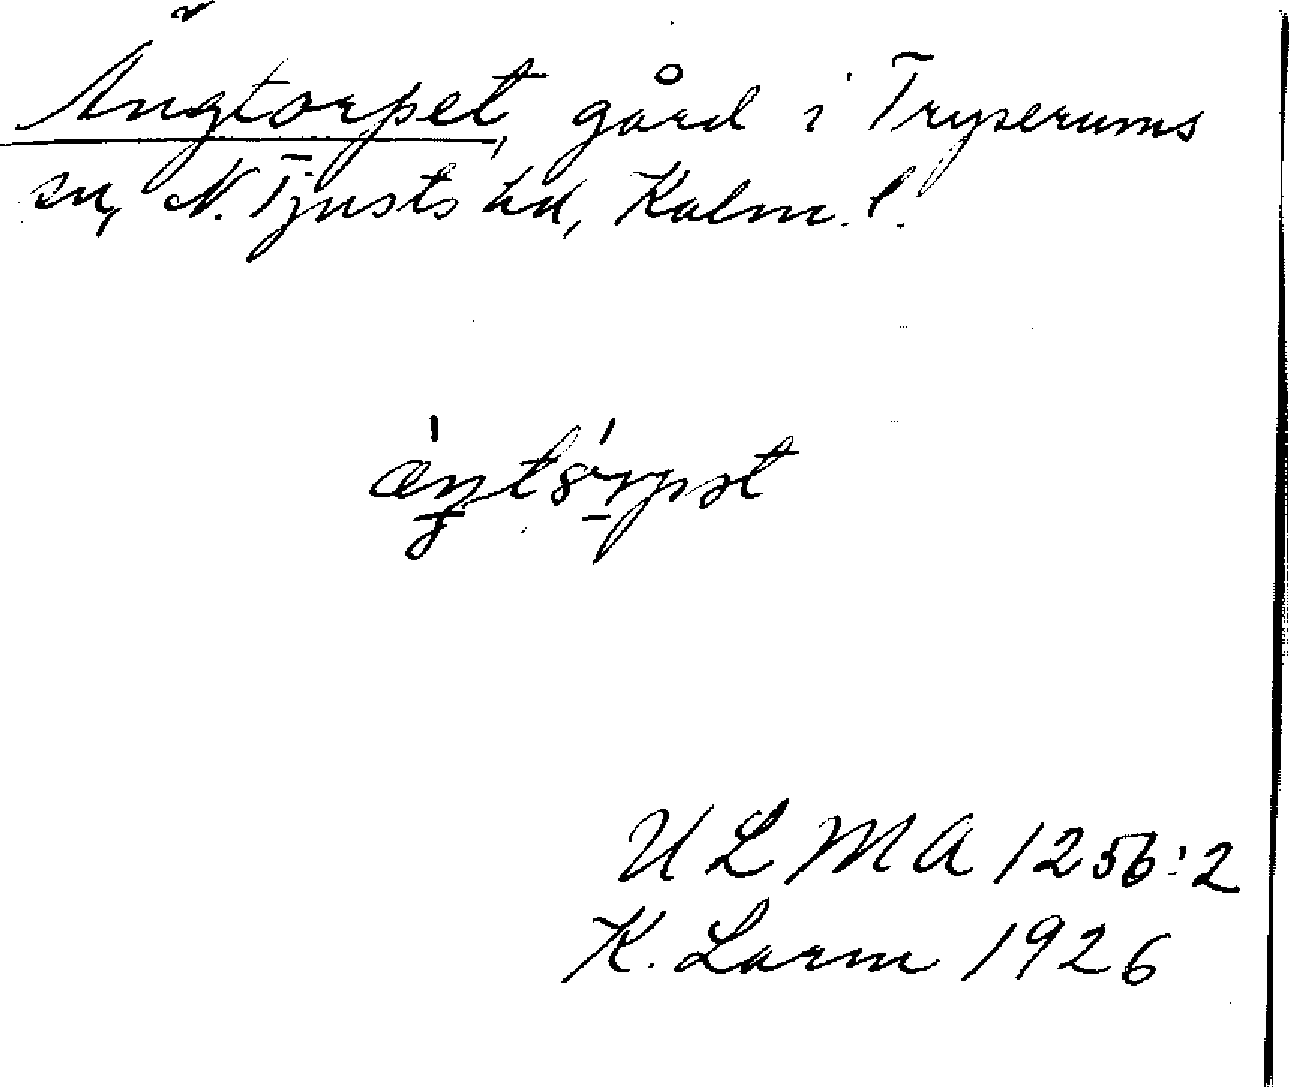 Ängtorpet, gård i Tryserums
sn, N. Tjusts hd, Kalm. l.
ULMA 1256:2
K. Larm 1926